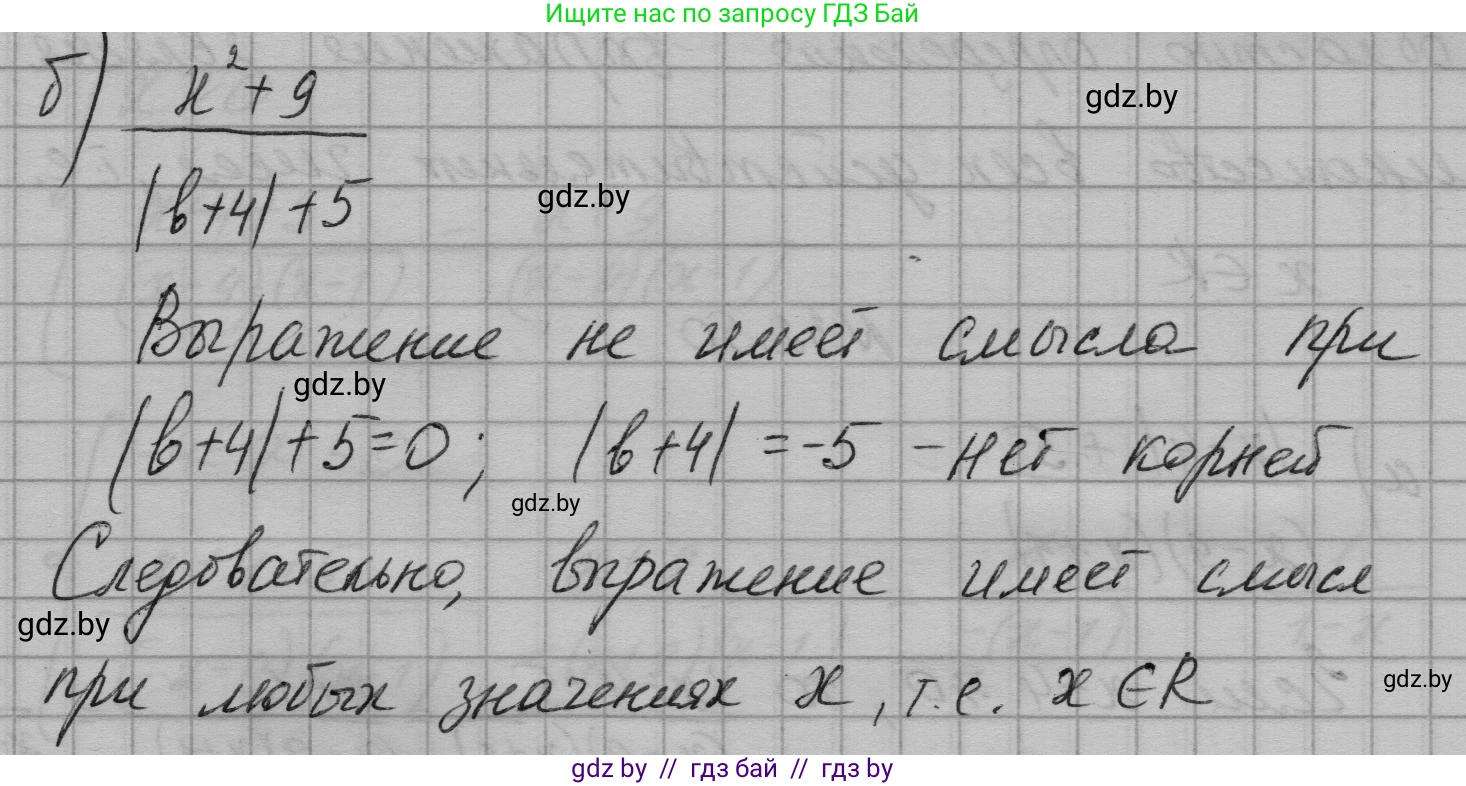 Ищите нас по запросу ГДЗ Бай
б) x²+9
gdz.by
|в+4|+5
gdz.by
Выражение не имеет смысла при
gdz.by
|в+4|+5=0; |в+4|=-5 -нет корней
gdz.by
Следовательно, выражение имеет смысл
gdz.by
при любых значениях x, т.е. x∈R
gdz.by
gdz by // гдз бай // гдз by